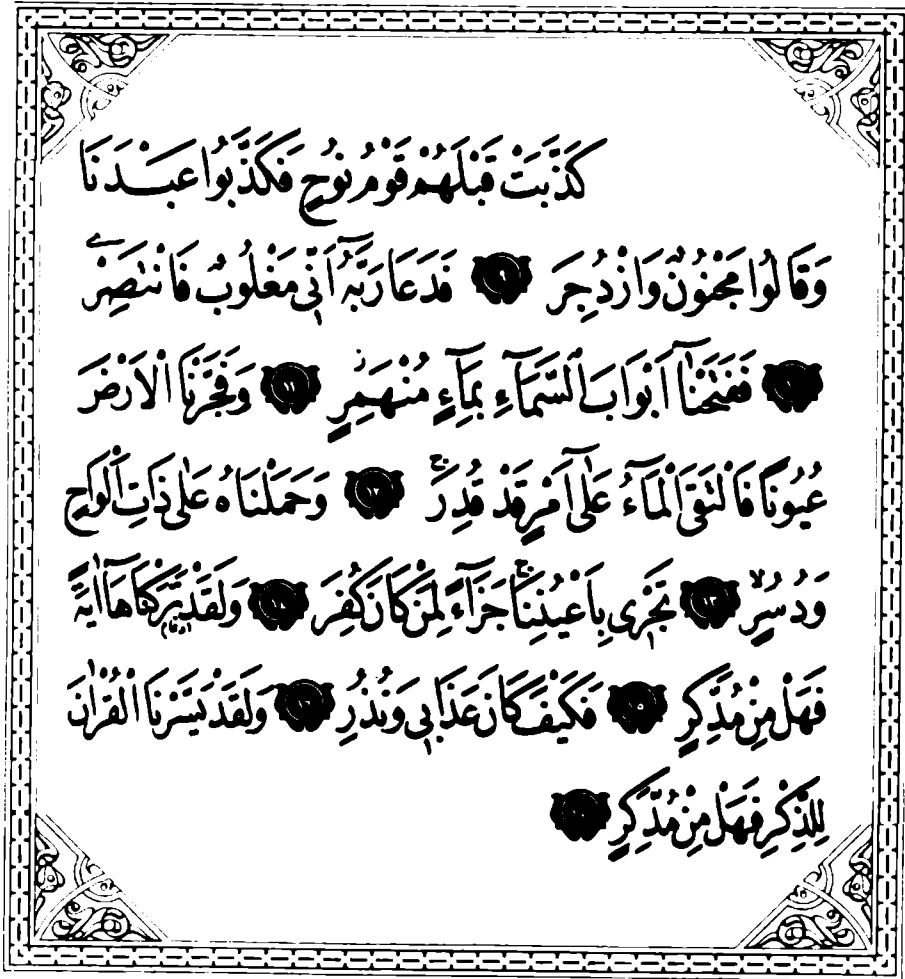 كَذَّبَتْ قَبْلَهُمْ قَوْمُ نُوحٍ فَكَذَّبُوا عَبْدَنَا
وَقَالُوا مَجْنُونٌ وَازْدُجِرَ ﴿٩﴾ فَدَعَا رَبَّهُٓ اَنّ۪ي مَغْلُوبٌ فَانْتَصِرْ
﴿١٠﴾ فَفَتَحْنَٓا اَبْوَابَ السَّمَٓاءِ بِمَٓاءٍ مُنْهَمِرٍ ﴿١١﴾ وَفَجَّرْنَا الْاَرْضَ
عُيُونًا فَالْتَقَى الْمَٓاءُ عَلٰٓى اَمْرٍ قَدْ قُدِرَۚ ﴿١٢﴾ وَحَمَلْنَاهُ عَلٰى ذَاتِ اَلْوَاحٍ
وَدُسُرٍۙ ﴿١٣﴾ تَجْر۪ي بِاَعْيُنِنَاۚ جَزَٓاءً لِمَنْ كَانَ كُفِرَ ﴿١٤﴾ وَلَقَدْ تَرَكْنَاهَٓا اٰيَةً
فَهَلْ مِنْ مُدَّكِرٍ ﴿١٥﴾ فَكَيْفَ كَانَ عَذَاب۪ي وَنُذُرِ ﴿١٦﴾ وَلَقَدْ يَسَّرْنَا الْقُرْاٰنَ
لِلذِّكْرِ فَهَلْ مِنْ مُدَّكِرٍ ﴿١٧﴾